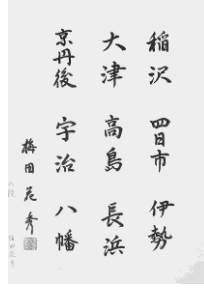 稲沢 四日市 伊勢
大津 高島 長浜
京丹後 宇治 八幡
梅田 花秀